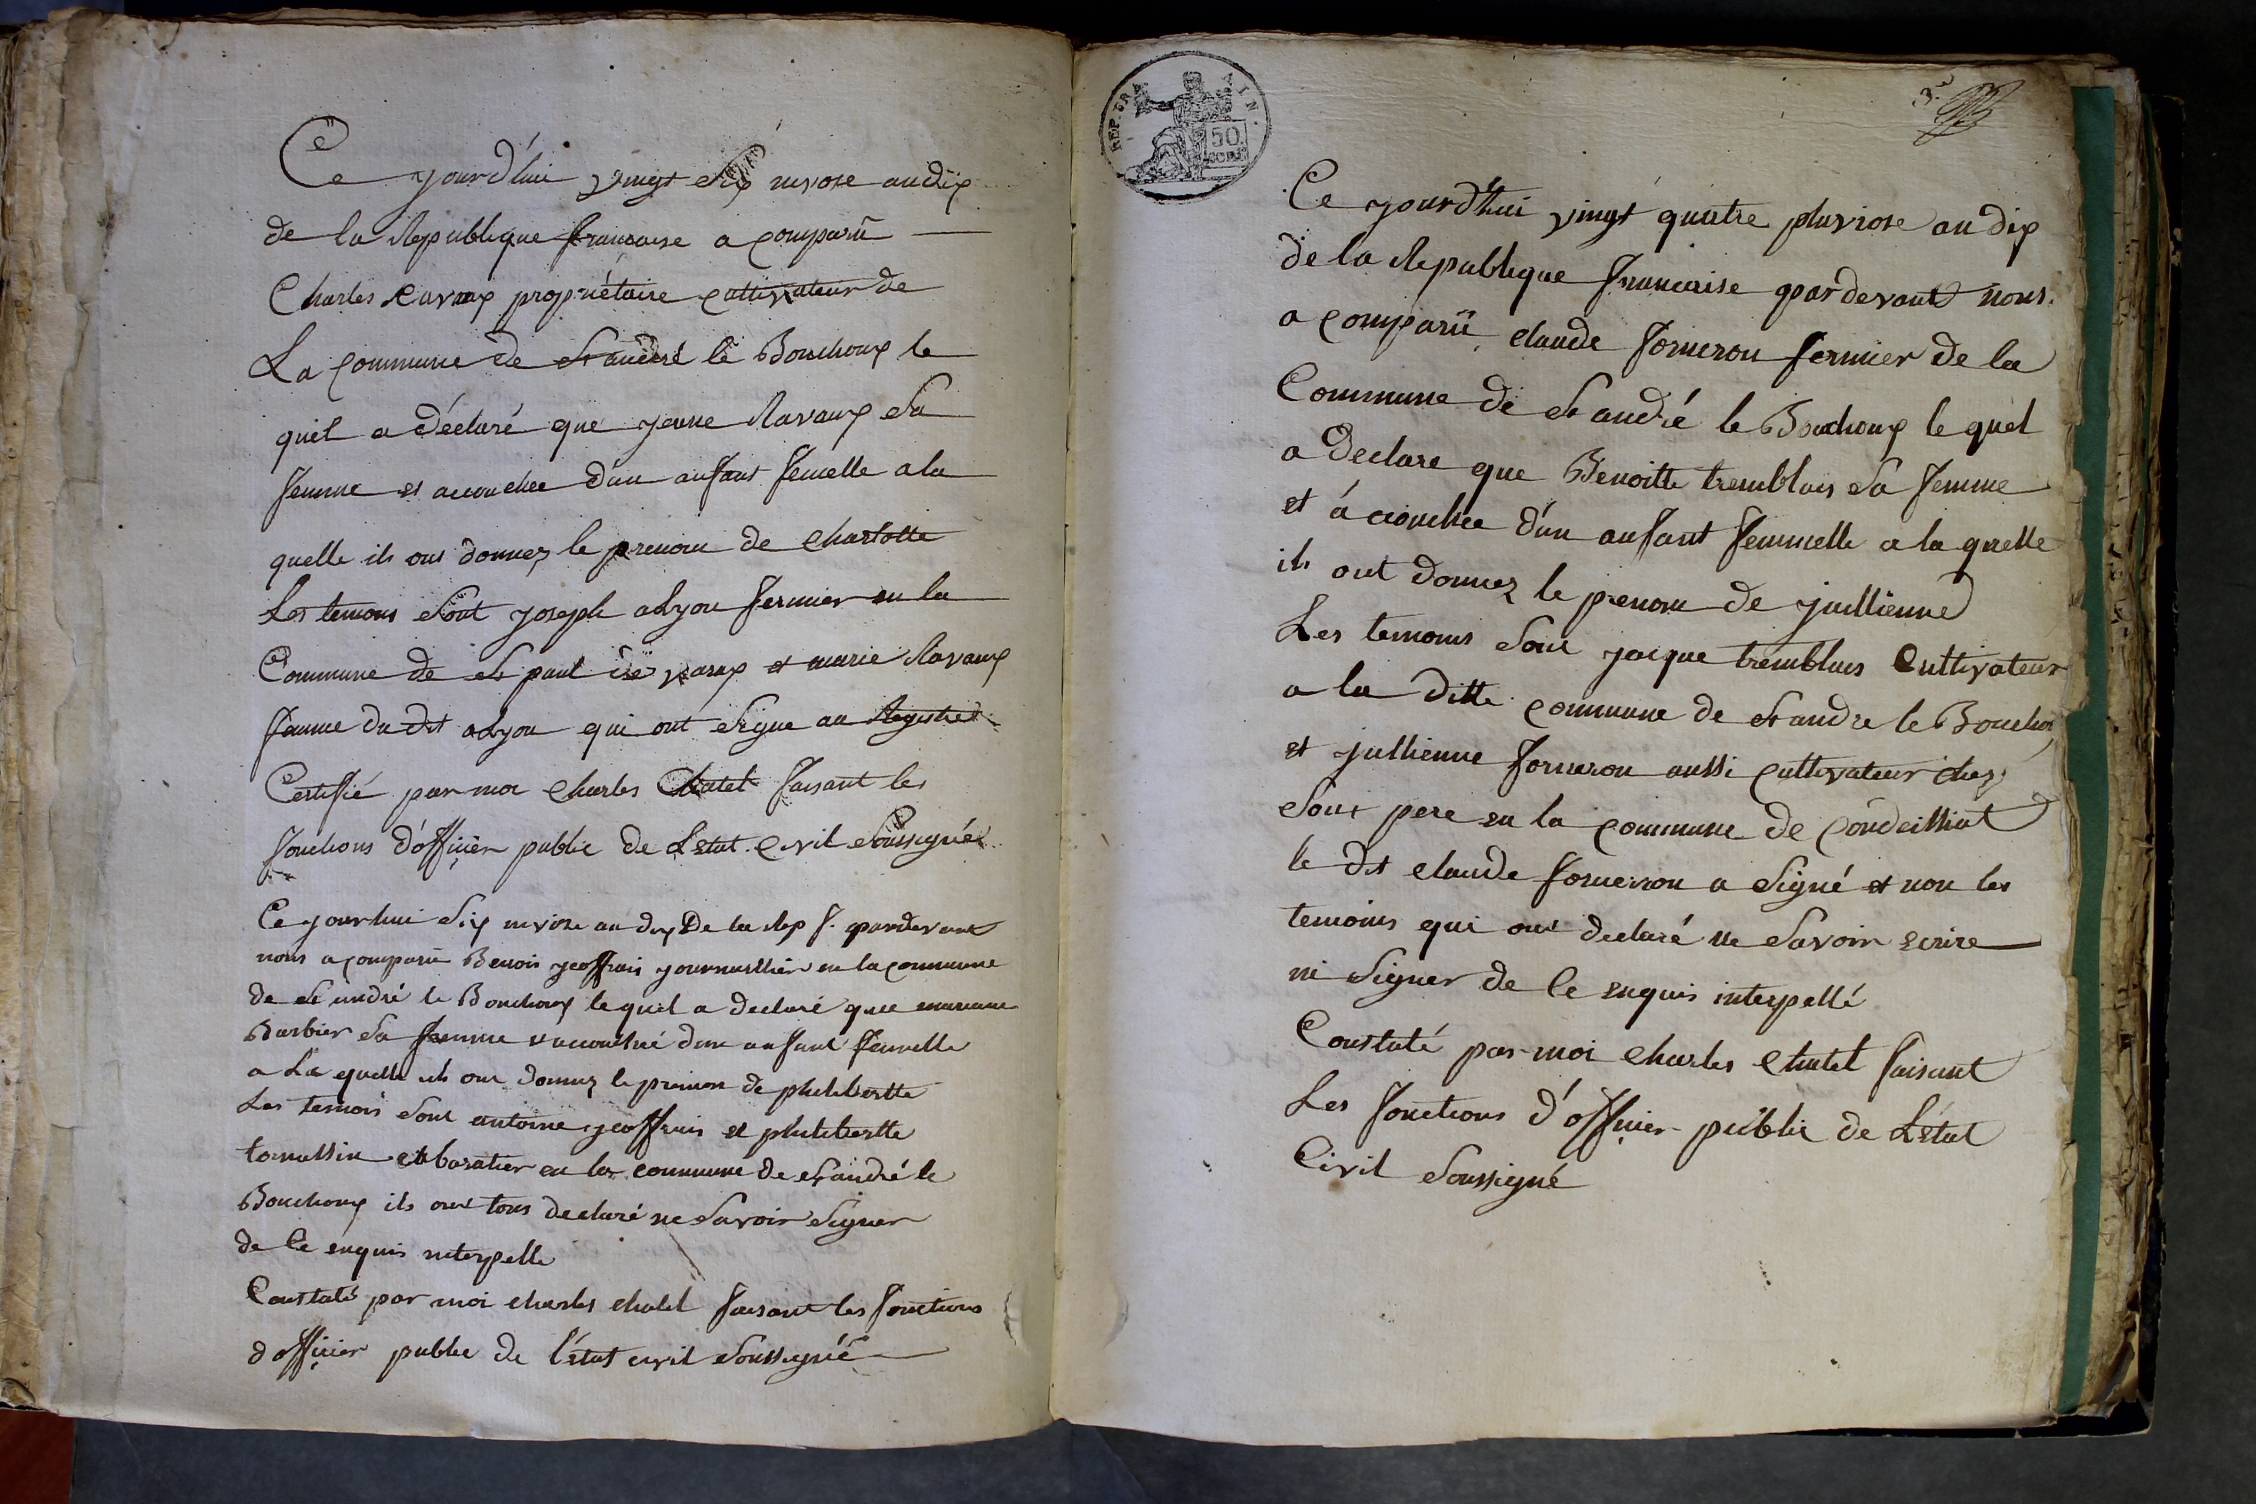 Ce yourd'hui vingt six nivose an dix
de la Republique francaise a comparû
Charles Ravaux propriétaire cultivateur de
La commune de St andré le Bouchoux le
quel a déclaré que yeane Ravaux sa
femme et accouchee d'un anfant femelle a la
quelle ils ont donnez le prenom de Charlotte
Les temons sont yoseph adyon fermier en la
Commune de St paul de varax et marie Ravaux
famme du dit adyon qui ont signe au Registre
Certifié par moi Charles Chatel faisant les
fonctions d'officier public de Létat Civil soussigné
Ce yourhui six nivose an dix De la Rep f. pardevant
nous a comparû Benois yeoffrais yournaillier en la commune
de St andré le Bouchoux le quel a declaré que mariane
Barbier sa femme a accouché d'un anfant femelle
a La quelle ils ont donnez le prenom de philibertte
Les temois sont antoine yeoffrais et philibertte
tomassin en la commune de St andré le
Bouchoux ils ont tous declaré ne savoir signer
de Ce enquis interpelle
Constaté par moi charles chatel faisant les fonctions
d officier public de l'état civil soussigné
REP. FRA
50
CENT
TIN.
3.e
Ce yourd'hui vingt quatre pluviose an dix
de la Republique francaise pardevant nous
a comparû claude forneron fermier de la
Commune de St andré le Bouchoux le quel
a Declare que Benoitte tremblais sa femme
et a coouchee d'un anfant femmelle a la quelle
ils ont donnez le prenom de juillienne
Les temoins sont yacque tremblais Cultivateur
a la ditte commune de St andre le Bouchou
et jullienne forneron aussi cultivateur chez
sont pere en la commune de Condeissiat
le dit claude forneron a signé et non les
temoins qui ont declaré ne savoir ecrire
ni signer de Ce enquis interpellé
Constaté par moi Charles Chatel faisant
Les fonctions d'officier public de L'état
Civil soussigné